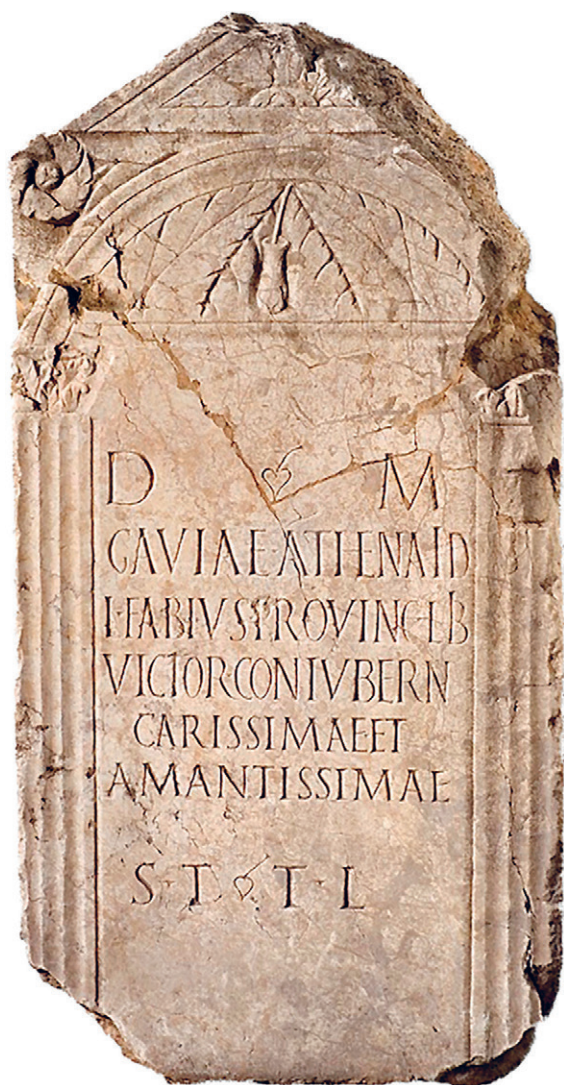 D M
GAVIAE·ATHENAID
L·FABIVS PROVINC·LIB
VICTOR CONTVBERN
CARISSIMAE ET
AMANTISSIMAE
S·T T·L